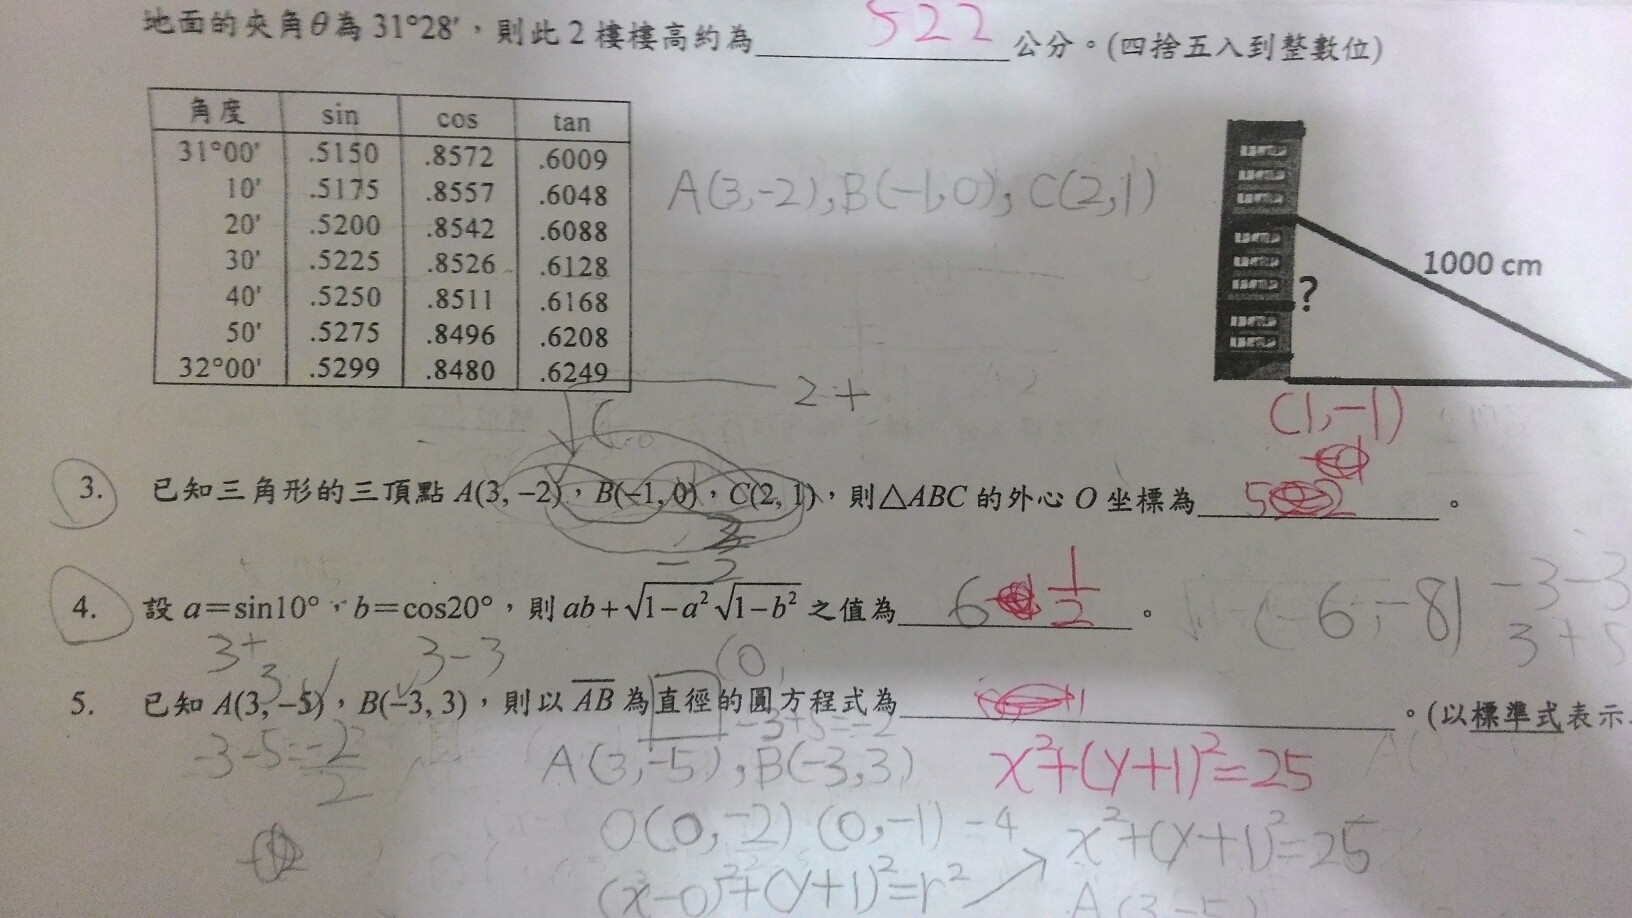 地面的夾角θ為 31°28′,則此 2 樓樓高約為 522 公分。(四捨五入到整數位)
角度 sin cos tan
31°00′ .5150 .8572 .6009
10′ .5175 .8557 .6048
20′ .5200 .8542 .6088
30′ .5225 .8526 .6128
40′ .5250 .8511 .6168
50′ .5275 .8496 .6208
32°00′ .5299 .8480 .6249
A(3,-2),B(-1,0),C(2,1)
1000 cm
?
2+
(1,-1)
3. 已知三角形的三頂點 A(3, −2),B(−1, 0),C(2, 1),則△ABC 的外心 O 坐標為 。
-2
4. 設 a=sin10°,b=cos20°,則 ab+√1−a² √1−b² 之值為 6 1/2 。
(-6,-8) -3-3
3+5
3+3 3-3 (0,
5. 已知 A(3, −5),B(−3, 3),則以 AB 為直徑的圓方程式為 。(以標準式表示
-3+5=-2
-3-5=-2/2
A(3,-5),B(-3,3)
x²+(y+1)²=25
O(0,-2) (0,-1) =4
x²+(y+1)²=25
(x-0)²+(y+1)²=r²
A(3-5)